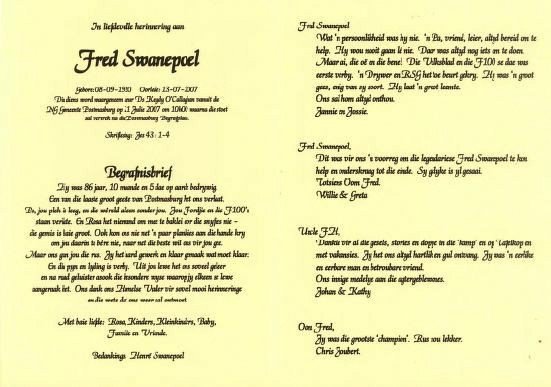 In liefdevolle herinnering aan
Fred Swanepoel
Gebore: 08-09-1920 Oorlede: 13-07-2007
Die diens word waargeneem deur Ds Keyly O'Callaghan vanuit die
NG Gemeente Postmasburg op 21 Julie 2007 om 10h00 waarna die stoet
sal vertrek na die Postmasburg Begrafplaas.
Skriflesing: Jes 43: 1-4
Begrafnisbrief
Hy was 86 jaar, 10 maande en 5 dae op aarde bedrywig.
Een van die laaste groot geeste van Postmasburg het ons verlaat.
Pa, jou plek is leeg, en die wêreld alleen sonder jou. Jou Fordjie en die F100's
staan verlate. En Rosa het niemand om mee te baklei oor die snyfies nie -
die gemis is baie groot. Ook kon ons nie net 'n paar planties aan die hande kry
om jou daarin te bêre nie, maar net die beste wil ons vir jou gee.
Maar ons gun jou die rus. Jy het hard gewerk en klaar gemaak wat moet klaar.
En die pyn en lyding is verby. Uit jou lewe het ons soveel geleer
en na rud geluister asook die besondere wyse waarop jy elkeen se lewe
aangeraak het. Ons dank ons Hemelse Vader vir sovel mooi herinneringe
en die wete dat ons weer sal ontmoet.
Met baie liefde: Rosa, Kinders, Kleinkinders, Baby,
Familie en Vriende.
Bedankings Henré Swanepoel
Fred Swanepoel
Wat 'n persoonlikheid was hy nie. 'n Pa, vriend, leier, altyd bereid om te
help. Hy wou nooit gaan lê nie. Daar was altyd nog iets om te doen.
Maar ai, die oë en die bene! Die Volksblad en die F100 se dae was
eerste verby. 'n Drywer en RSG het toe beurt gekry. Hy was 'n groot
gees, enig van sy soort. Hy laat 'n groot leemte.
Ons sal hom altyd onthou.
Jannie en Jossie.
Fred Swanepoel,
Dit was vir ons 'n voorreg om die legendariese Fred Swanepoel te kon
help en onderskraag tot die einde. Sy glydke is yl gesaai.
Totsiens Oom Fred.
Willie & Greta
Uncle F.H,
Dankie vir al die geselS, stories en doppe in die 'kamp' en op Lapelkop en
met vakansies. Jy het ons altyd hartlik en gul ontvang. Jy was 'n eerlike
en eerbare man en betroubare vriend.
Ons innige medelye aan die agtergeblewenes.
Johan & Kathy
Oom Fred,
Jy was die grootste 'champion'. Rus sou lekker.
Chris Joubert.